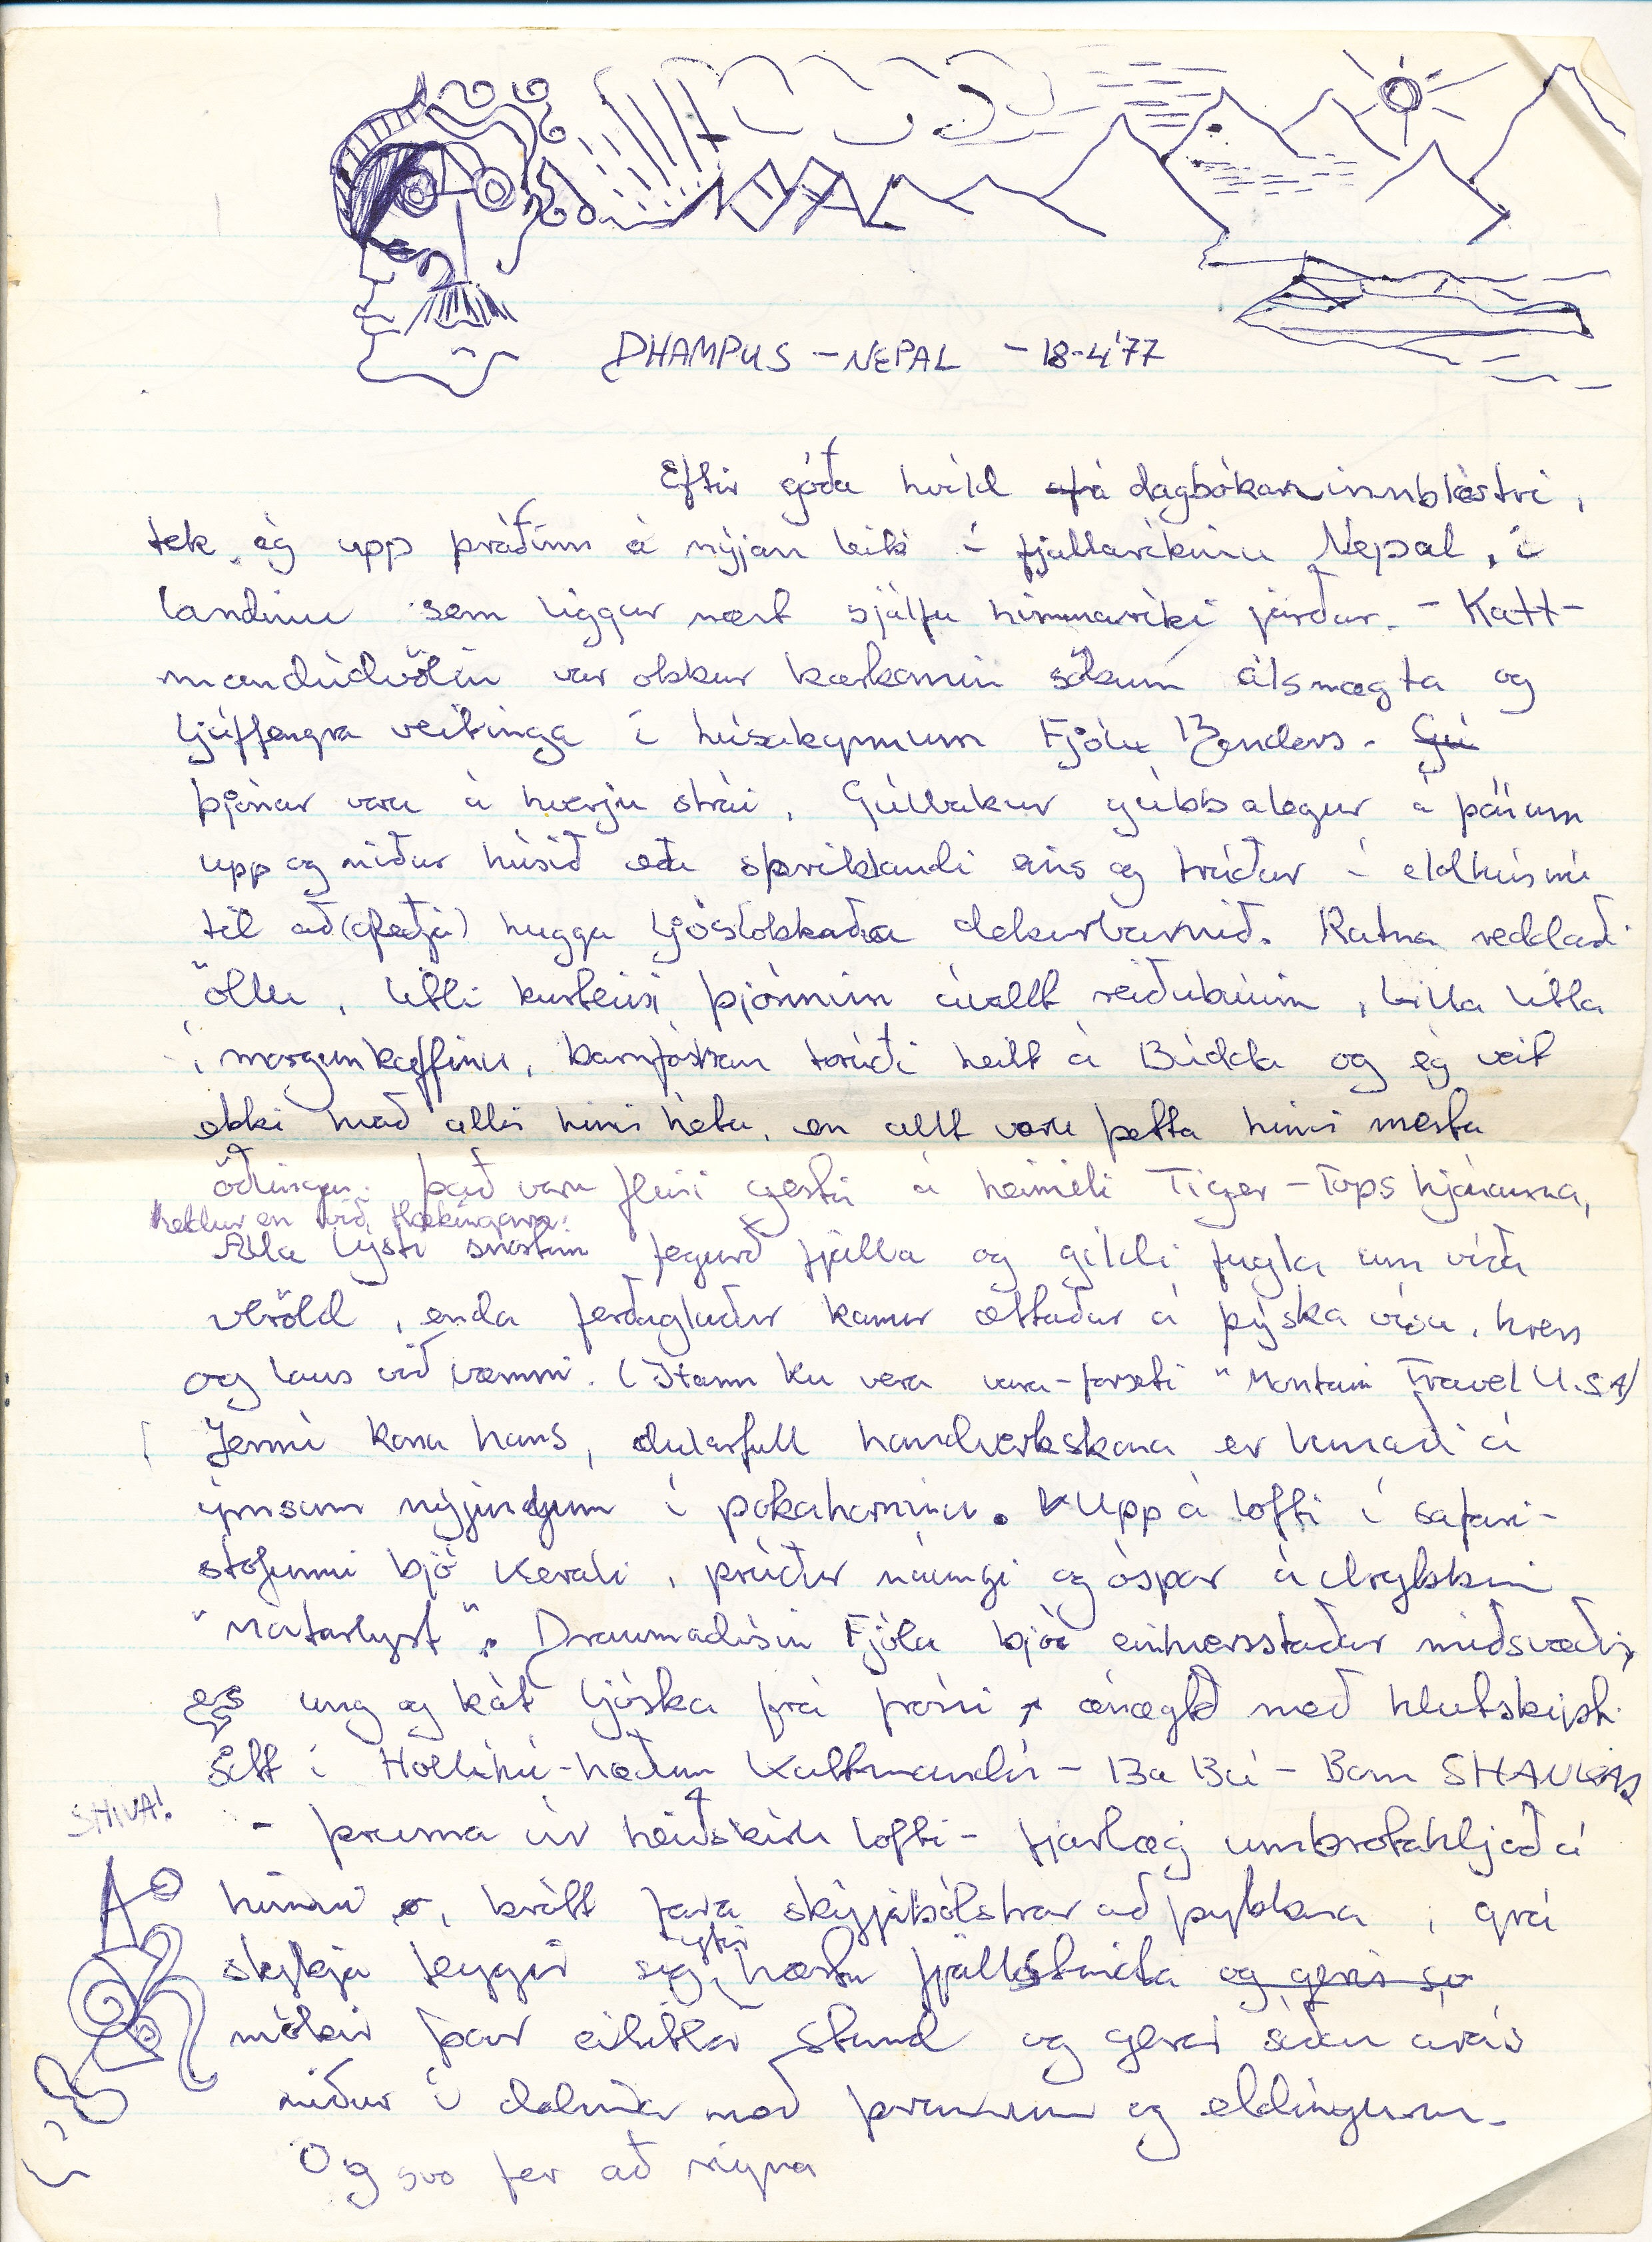 DHAMPUS - NEPAL - 18-4'77
Eftir góða hvíld frá dagbókarinnblæstri,
tek ég upp þráðinn á nýjan leik í fjallaríkinu Nepal, í
landinu sem liggur næst sjálfu himnaríki jarðar. - Katt-
mandúdvölin var okkur kærkomin sökum álsmagta og
ljúffengra veitinga í húsakynnum Fjólu Benders. Gú
þjónar voru á hverju strái, Gullakur gubbalegur á þönum
upp og niður húsið eða sprikklandi eins og trúður í eldhúsinu
til að (efleðja) hugga ljóslokkaða dekurbarnið. Ratna reddaði
öllu, litli kurteisi þjónninn ávallt reiðubúinn, Lilla litla
í morgunkaffinu, barnfóstran trúði heitt á Búdda og ég veit
ekki hvað allir hinir hétu, en allt voru þetta hinir mestu
öðlingar. Það voru fleiri gestir á heimili Tiger-Tops hjónanna,
heldur en við flækingarnir.
Alla lýsti snortin fegurð fjalla og gildi fugla um víða
veröld, enda ferðaglaður kanur ættaður á þýska vísu, hress
og laus við væmni. (Hann ku vera vara-forseti "Montain Travel U.S.A)
Jenní kona hans, dularfull handverkskona er lumaði á
ýmsum nýjungum í pokahorninu. Upp á lofti í safari-
stofunni bjó Kerali, prúður náungi og óspar á drykkinn
"Matarlyst". Draumadísin Fjóla bjó einhversstaðar miðsvæðis,
ung og kát ljóska frá Fróni, ánægð með hlutskipti
sitt í Hollíhú-hæðum Kattmandú - Ba Bú - Bom SHANKAR
SHIVA!
- þruma úr heiðskíru lofti - fjarlæg umbrotahljóð á
himni, brátt fara skýjabólstrar að þykkna, grá
skykja teygir sig yfir hæstu fjallstinda og gerir so
mókir þar eilitla stund og gerir síðan árás
niður í dalina með þrumum og eldingum.
Og svo fer að rigna